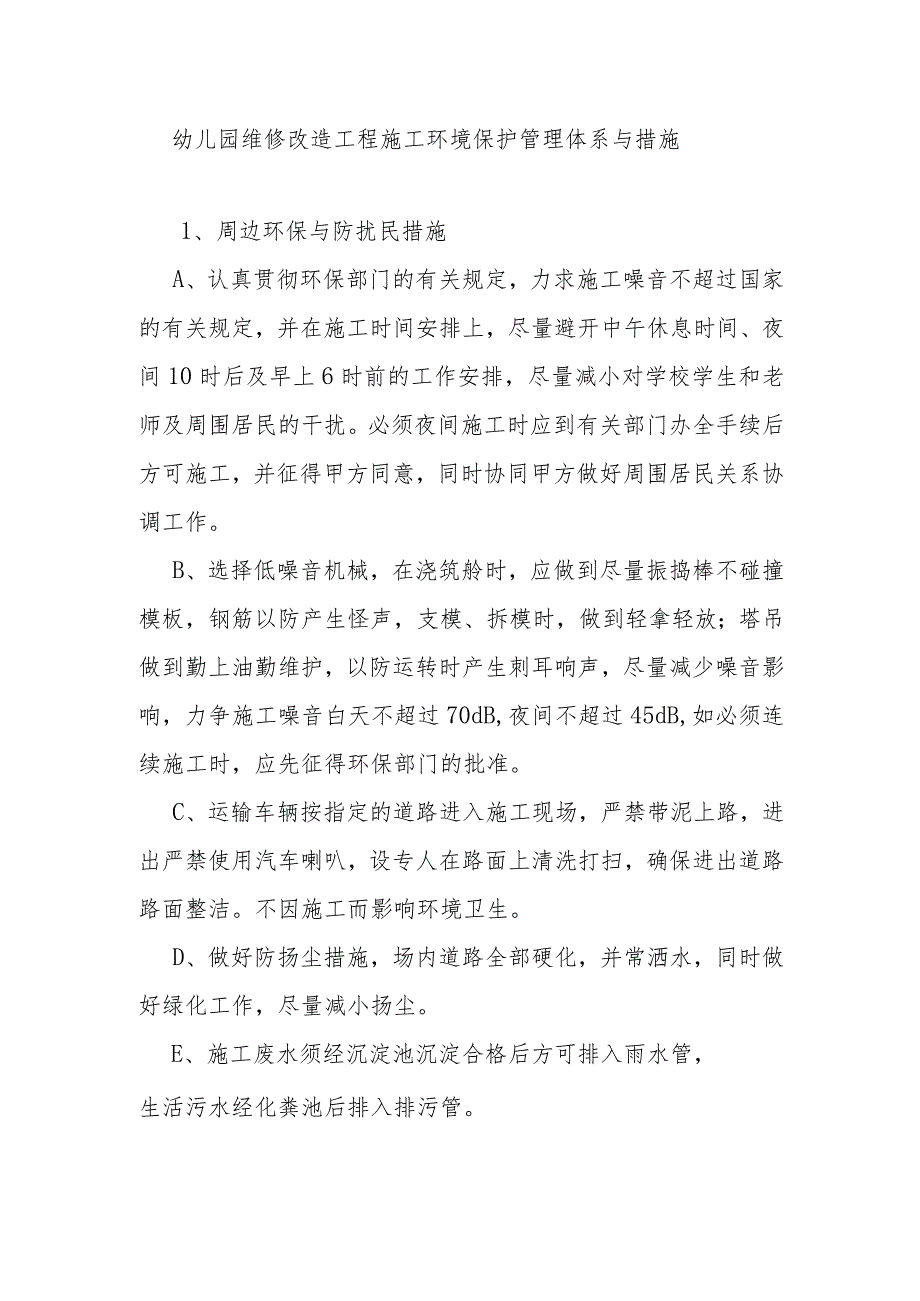 幼儿园维修改造工程施工环境保护管理体系与措施
1、周边环保与防扰民措施
A、认真贯彻环保部门的有关规定，力求施工噪音不超过国家
的有关规定，并在施工时间安排上，尽量避开中午休息时间、夜
间10时后及早上6时前的工作安排，尽量减小对学校学生和老
师及周围居民的干扰。必须夜间施工时应到有关部门办全手续后
方可施工，并征得甲方同意，同时协同甲方做好周围居民关系协
调工作。
B、选择低噪音机械，在浇筑舲时，应做到尽量振捣棒不碰撞
模板，钢筋以防产生怪声，支模、拆模时，做到轻拿轻放；塔吊
做到勤上油勤维护，以防运转时产生刺耳响声，尽量减少噪音影
响，力争施工噪音白天不超过70dB,夜间不超过45dB,如必须连
续施工时，应先征得环保部门的批准。
C、运输车辆按指定的道路进入施工现场，严禁带泥上路，进
出严禁使用汽车喇叭，设专人在路面上清洗打扫，确保进出道路
路面整洁。不因施工而影响环境卫生。
D、做好防扬尘措施，场内道路全部硬化，并常洒水，同时做
好绿化工作，尽量减小扬尘。
E、施工废水须经沉淀池沉淀合格后方可排入雨水管，
生活污水经化粪池后排入排污管。